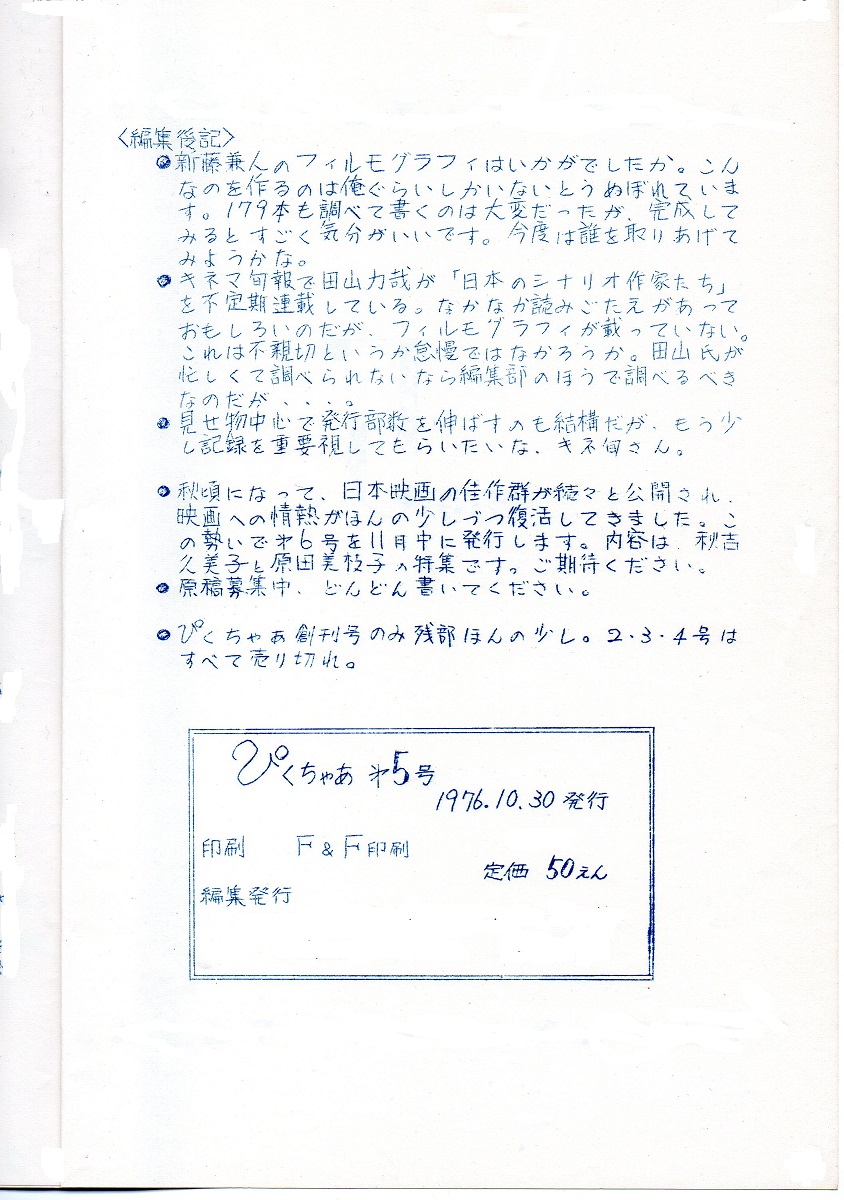 〈編集後記〉
●新藤兼人のフィルモグラフィはいかがでしたか。こん
なのを作るのは俺ぐらいしかいないとうぬぼれていま
す。179本も調べて書くのは大変だったが、完成して
みるとすごく気分がいいです。今度は誰を取りあげて
みようかな。
●キネマ旬報で田山力哉が「日本のシナリオ作家たち」
を不定期連載している。なかなか読みごたえがあって
おもしろいのだが、フィルモグラフィが載っていない。
これは不親切というか怠慢ではなかろうか。田山氏が
忙しくて調べられないなら編集部のほうで調べるべき
なのだが・・・。
●見せ物中心で発行部数を伸ばすのも結構だが、もう少
し記録を重要視してもらいたいな、キネ旬さん。
●秋頃になって、日本映画の佳作群が続々と公開され、
映画への情熱がほんの少しづつ復活してきました。こ
の勢いで㐧6号を11月中に発行します。内容は、秋吉
久美子と原田美枝子の特集です。ご期待ください。
●原稿募集中、どんどん書いてください。
●ぴくちゃあ創刊号のみ残部ほんの少し。2・3・4号は
すべて売り切れ。
ぴくちゃあ㐧5号
1976.10.30発行
印刷 F&F印刷
定価 50えん
編集発行